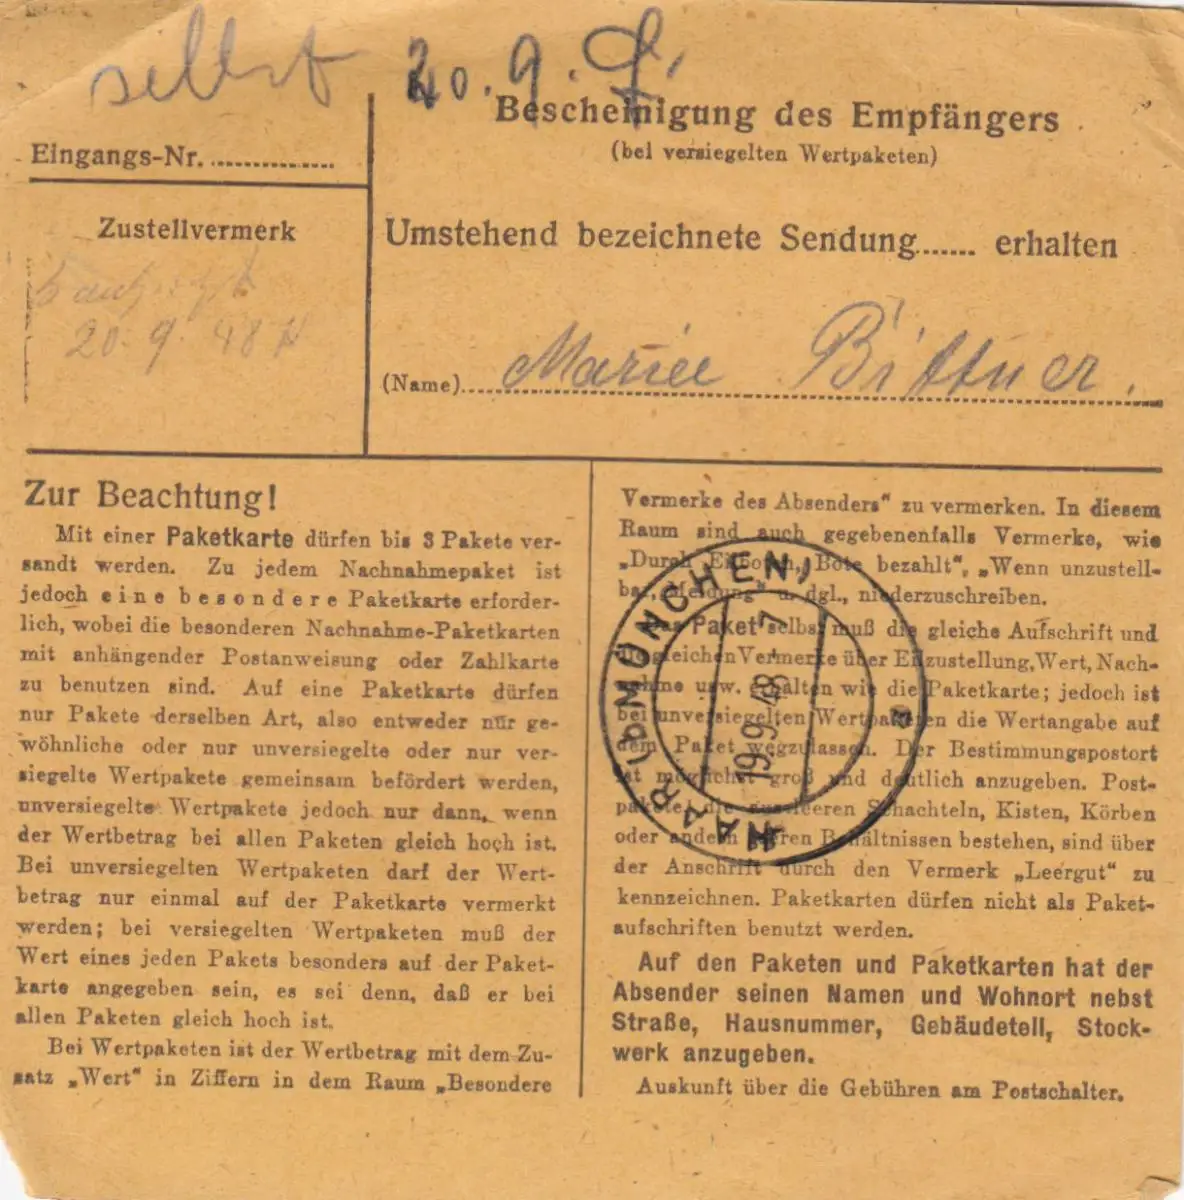 selbst 20.9.
Bescheinigung des Empfängers
(bei versiegelten Wertpaketen)
Eingangs-Nr. ..............
Zustellvermerk
20.9.48
Umstehend bezeichnete Sendung....... erhalten
(Name) Mariee Bittner.
Zur Beachtung!
Mit einer Paketkarte dürfen bis 3 Pakete ver-
sandt werden. Zu jedem Nachnahmepaket ist
jedoch eine besondere Paketkarte erforder-
lich, wobei die besonderen Nachnahme-Paketkarten
mit anhängender Postanweisung oder Zahlkarte
zu benutzen sind. Auf eine Paketkarte dürfen
nur Pakete derselben Art, also entweder nur ge-
wöhnliche oder nur unversiegelte oder nur ver-
siegelte Wertpakete gemeinsam befördert werden,
unversiegelte Wertpakete jedoch nur dann, wenn
der Wertbetrag bei allen Paketen gleich hoch ist.
Bei unversiegelten Wertpaketen darf der Wert-
betrag nur einmal auf der Paketkarte vermerkt
werden; bei versiegelten Wertpaketen muß der
Wert eines jeden Pakets besonders auf der Paket-
karte angegeben sein, es sei denn, daß er bei
allen Paketen gleich hoch ist.
Bei Wertpaketen ist der Wertbetrag mit dem Zu-
satz „Wert" in Ziffern in dem Raum „Besondere
Vermerke des Absenders" zu vermerken. In diesem
Raum sind auch gegebenenfalls Vermerke, wie
„Durch Eilboten, Bote bezahlt", „Wenn unzustell-
bar, Meldung" u. dgl., niederzuschreiben.
Das Paket selbst muß die gleiche Aufschrift und
die gleichen Vermerke über Eilzustellung, Wert, Nach-
nahme usw. erhalten wie die Paketkarte; jedoch ist
bei unversiegelten Wertpaketen die Wertangabe auf
dem Paket wegzulassen. Der Bestimmungspostort
ist möglichst groß und deutlich anzugeben. Post-
pakete, die aus leeren Schachteln, Kisten, Körben
oder anderen leeren Behältnissen bestehen, sind über
der Anschrift durch den Vermerk „Leergut" zu
kennzeichnen. Paketkarten dürfen nicht als Paket-
aufschriften benutzt werden.
Auf den Paketen und Paketkarten hat der
Absender seinen Namen und Wohnort nebst
Straße, Hausnummer, Gebäudeteil, Stock-
werk anzugeben.
Auskunft über die Gebühren am Postschalter.
HAAR (bMÜNCHEN)
19.9.48.-7
a